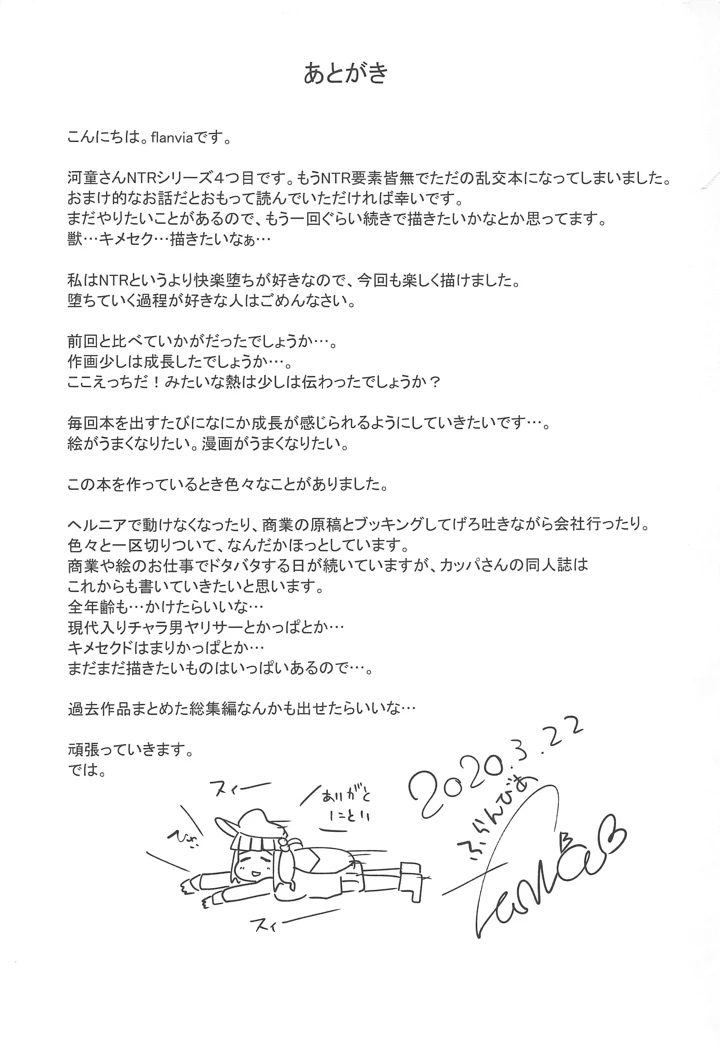 あとがき
こんにちは。flanviaです。
河童さんNTRシリーズ4つ目です。もうNTR要素皆無でただの乱交本になってしまいました。
おまけ的なお話だとおもって読んでいただければ幸いです。
まだやりたいことがあるので、もう一回ぐらい続きで描きたいかなとか思ってます。
獣…キメセク…描きたいなぁ…
私はNTRというより快楽堕ちが好きなので、今回も楽しく描けました。
堕ちていく過程が好きな人はごめんなさい。
前回と比べていかがだったでしょうか…。
作画少しは成長したでしょうか…。
ここえっちだ！みたいな熱は少しは伝わったでしょうか？
毎回本を出すたびになにか成長が感じられるようにしていきたいです…。
絵がうまくなりたい。漫画がうまくなりたい。
この本を作っているとき色々なことがありました。
ヘルニアで動けなくなったり、商業の原稿とブッキングしてげろ吐きながら会社行ったり。
色々と一区切りついて、なんだかほっとしています。
商業や絵のお仕事でドタバタする日が続いていますが、カッパさんの同人誌は
これからも書いていきたいと思います。
全年齢も…かけたらいいな…
現代入りチャラ男ヤリサーとかっぱとか…
キメセクドはまりかっぱとか…
まだまだ描きたいものはいっぱいあるので…。
過去作品まとめた総集編なんかも出せたらいいな…
頑張っていきます。
では。
2020.3.22
スィー
ありがと
にとり
ふらんびあ
スィー